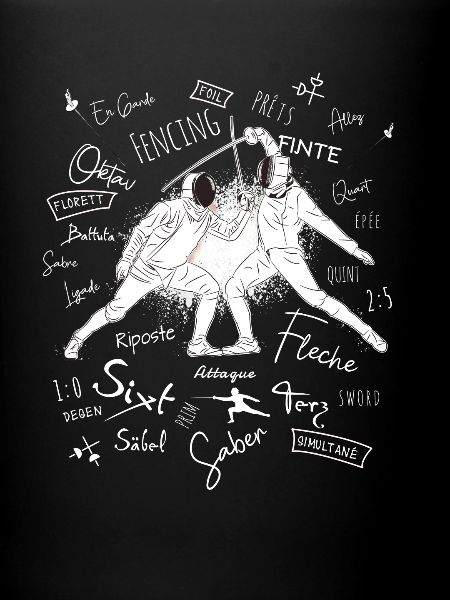 FOIL
En Garde
PRÊTS
Allez
FENCING
FINTE
Oktav
Quart
FLORETT
ÉPÉE
Battuta
Sabre
QUINT
Ligade
2:5
Riposte
Fleche
Attaque
1:0
Sixt
Terz
SWORD
DEGEN
PRIM
Säbel
Saber
SIMULTANÉ